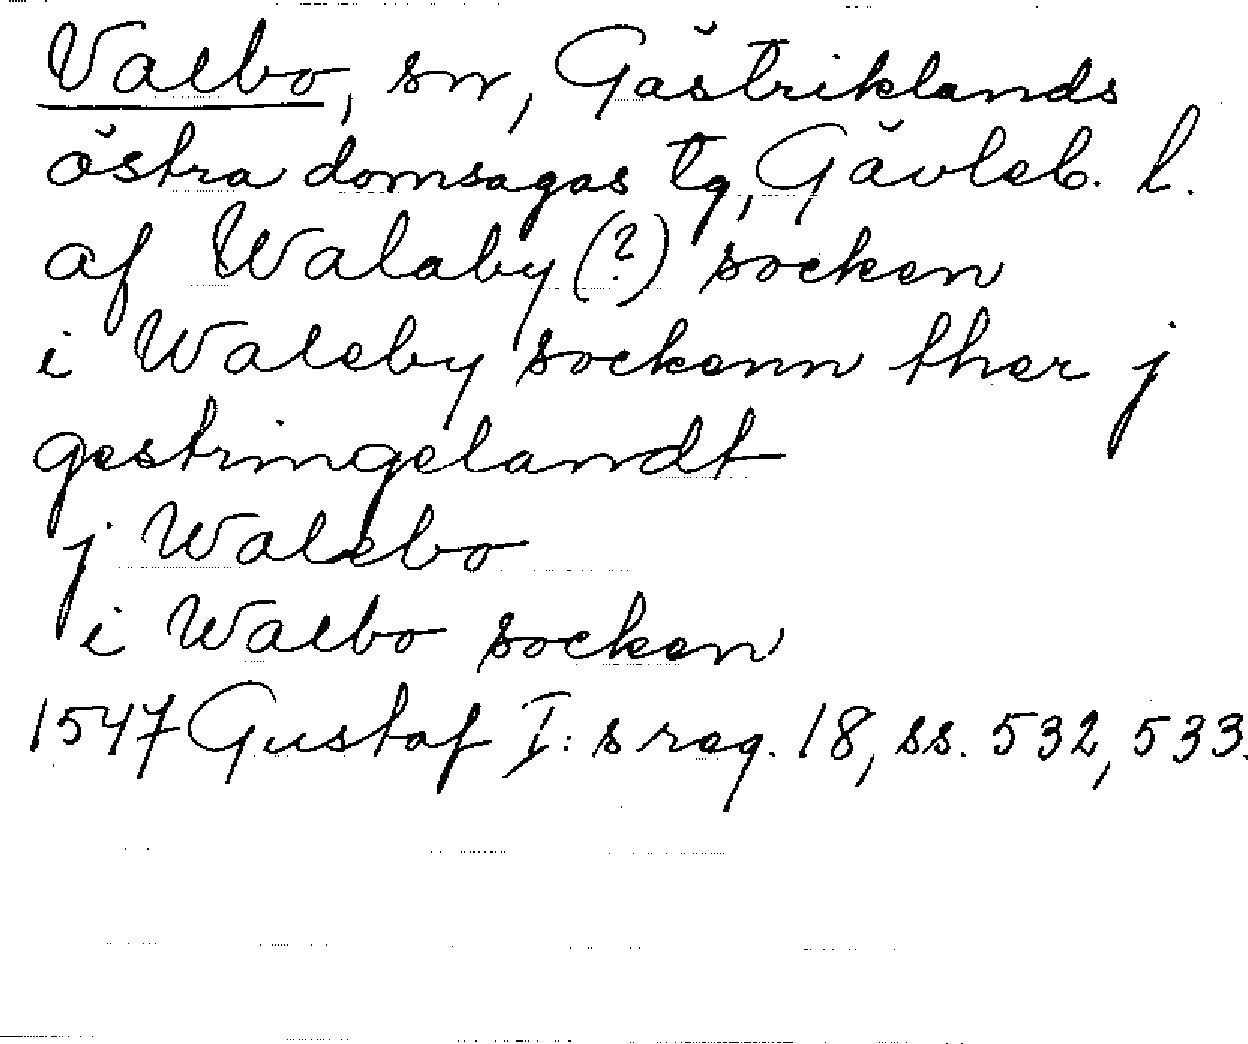 Valbo, sn, Gästriklands
östra domsagas tg, Gävleb. l.
af Walaby (?) socken
i Waleby sockenn ther j
gestringelandt
j Walebo
i Walbo socken
1547 Gustaf I:s reg. 18, ss. 532, 533.